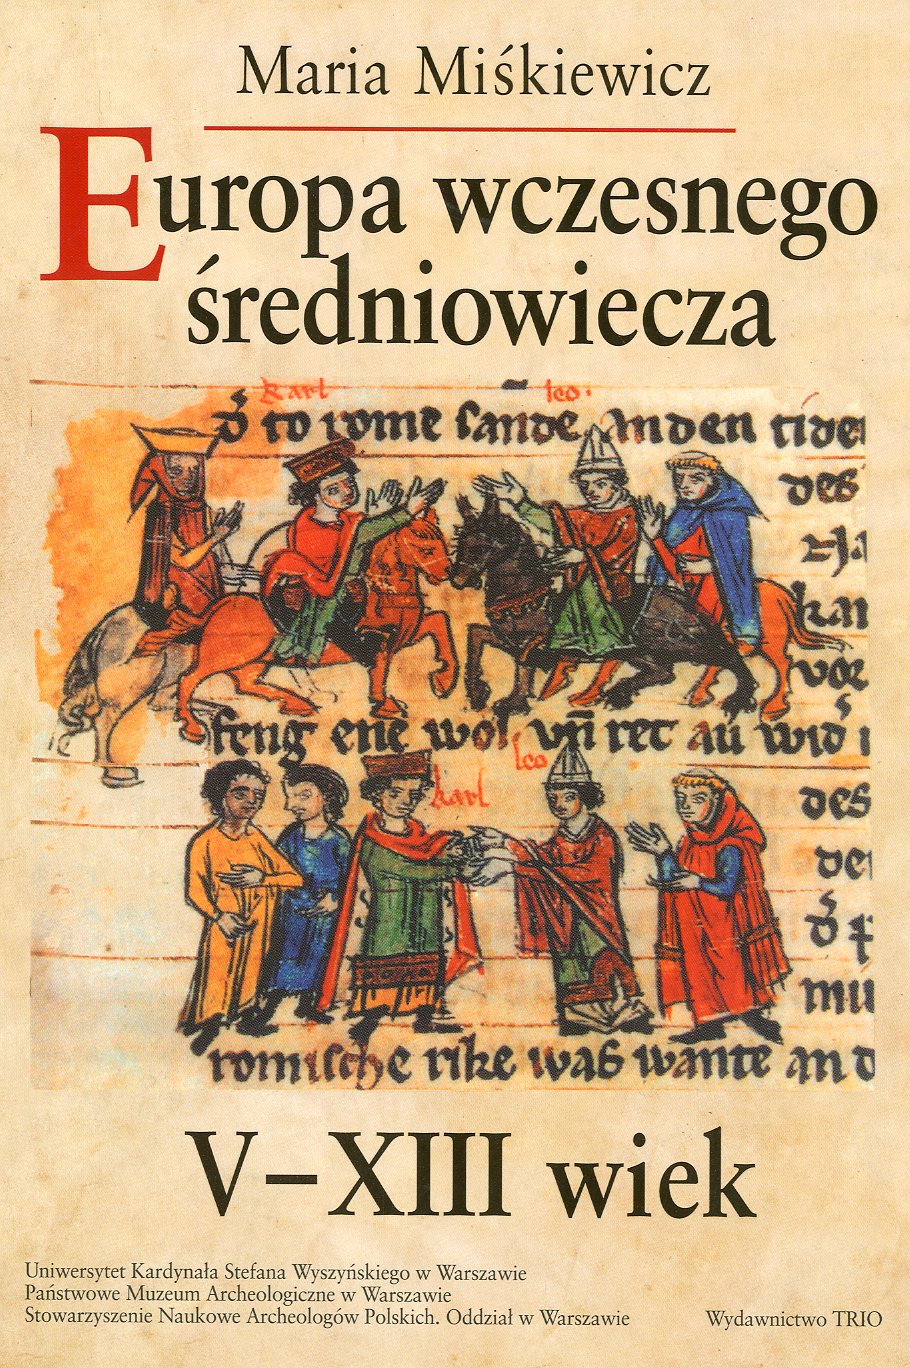 Maria Miśkiewicz
Europa wczesnego
średniowiecza
karl leo.
to rome sande an den tide
des
kar
vor
feng ene wol vñ ret au wid
leo
karl
des
de
mu
romische rike was wante an d
V–XIII wiek
Uniwersytet Kardynała Stefana Wyszyńskiego w Warszawie
Państwowe Muzeum Archeologiczne w Warszawie
Stowarzyszenie Naukowe Archeologów Polskich. Oddział w Warszawie
Wydawnictwo TRIO